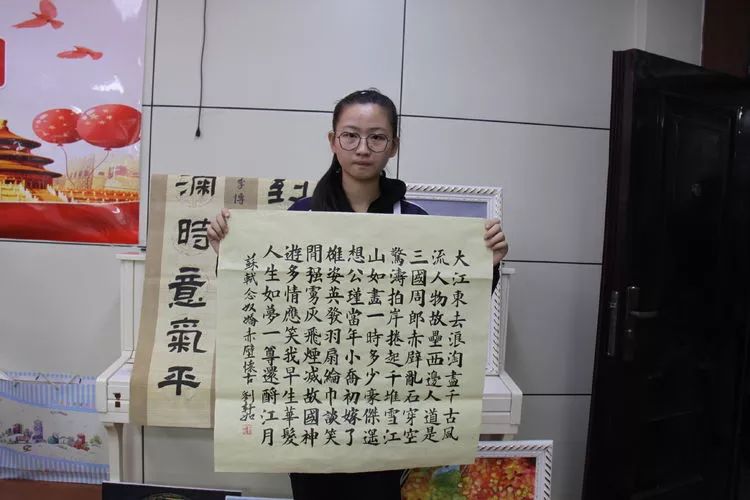 大江東去浪淘盡千古風
流人物故壘西邊人道是
三國周郎赤壁亂石穿空
驚濤拍岸捲起千堆雪江
山如畫一時多少豪傑遥
想公瑾當年小喬初嫁了
雄姿英發羽扇綸巾談笑
間强虜灰飛煙滅故國神
遊多情應笑我早生華髮
人生如夢一尊還酹江月
蘇軾念奴嬌赤壁懷古 劉
時意氣平